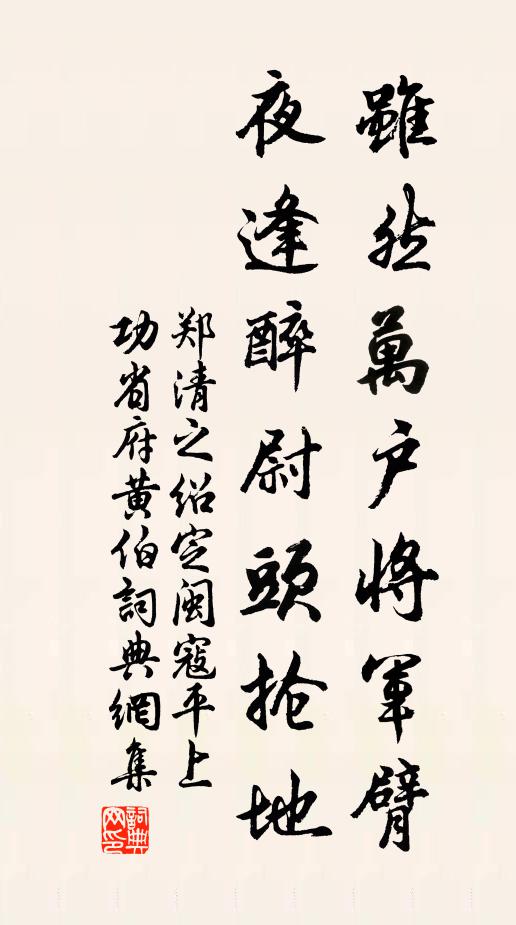 雖然萬户將軍臂
夜逢醉尉頭抢地
郑清之绍定闽寇平上
功省府黄伯詞典網集
詞典
网印